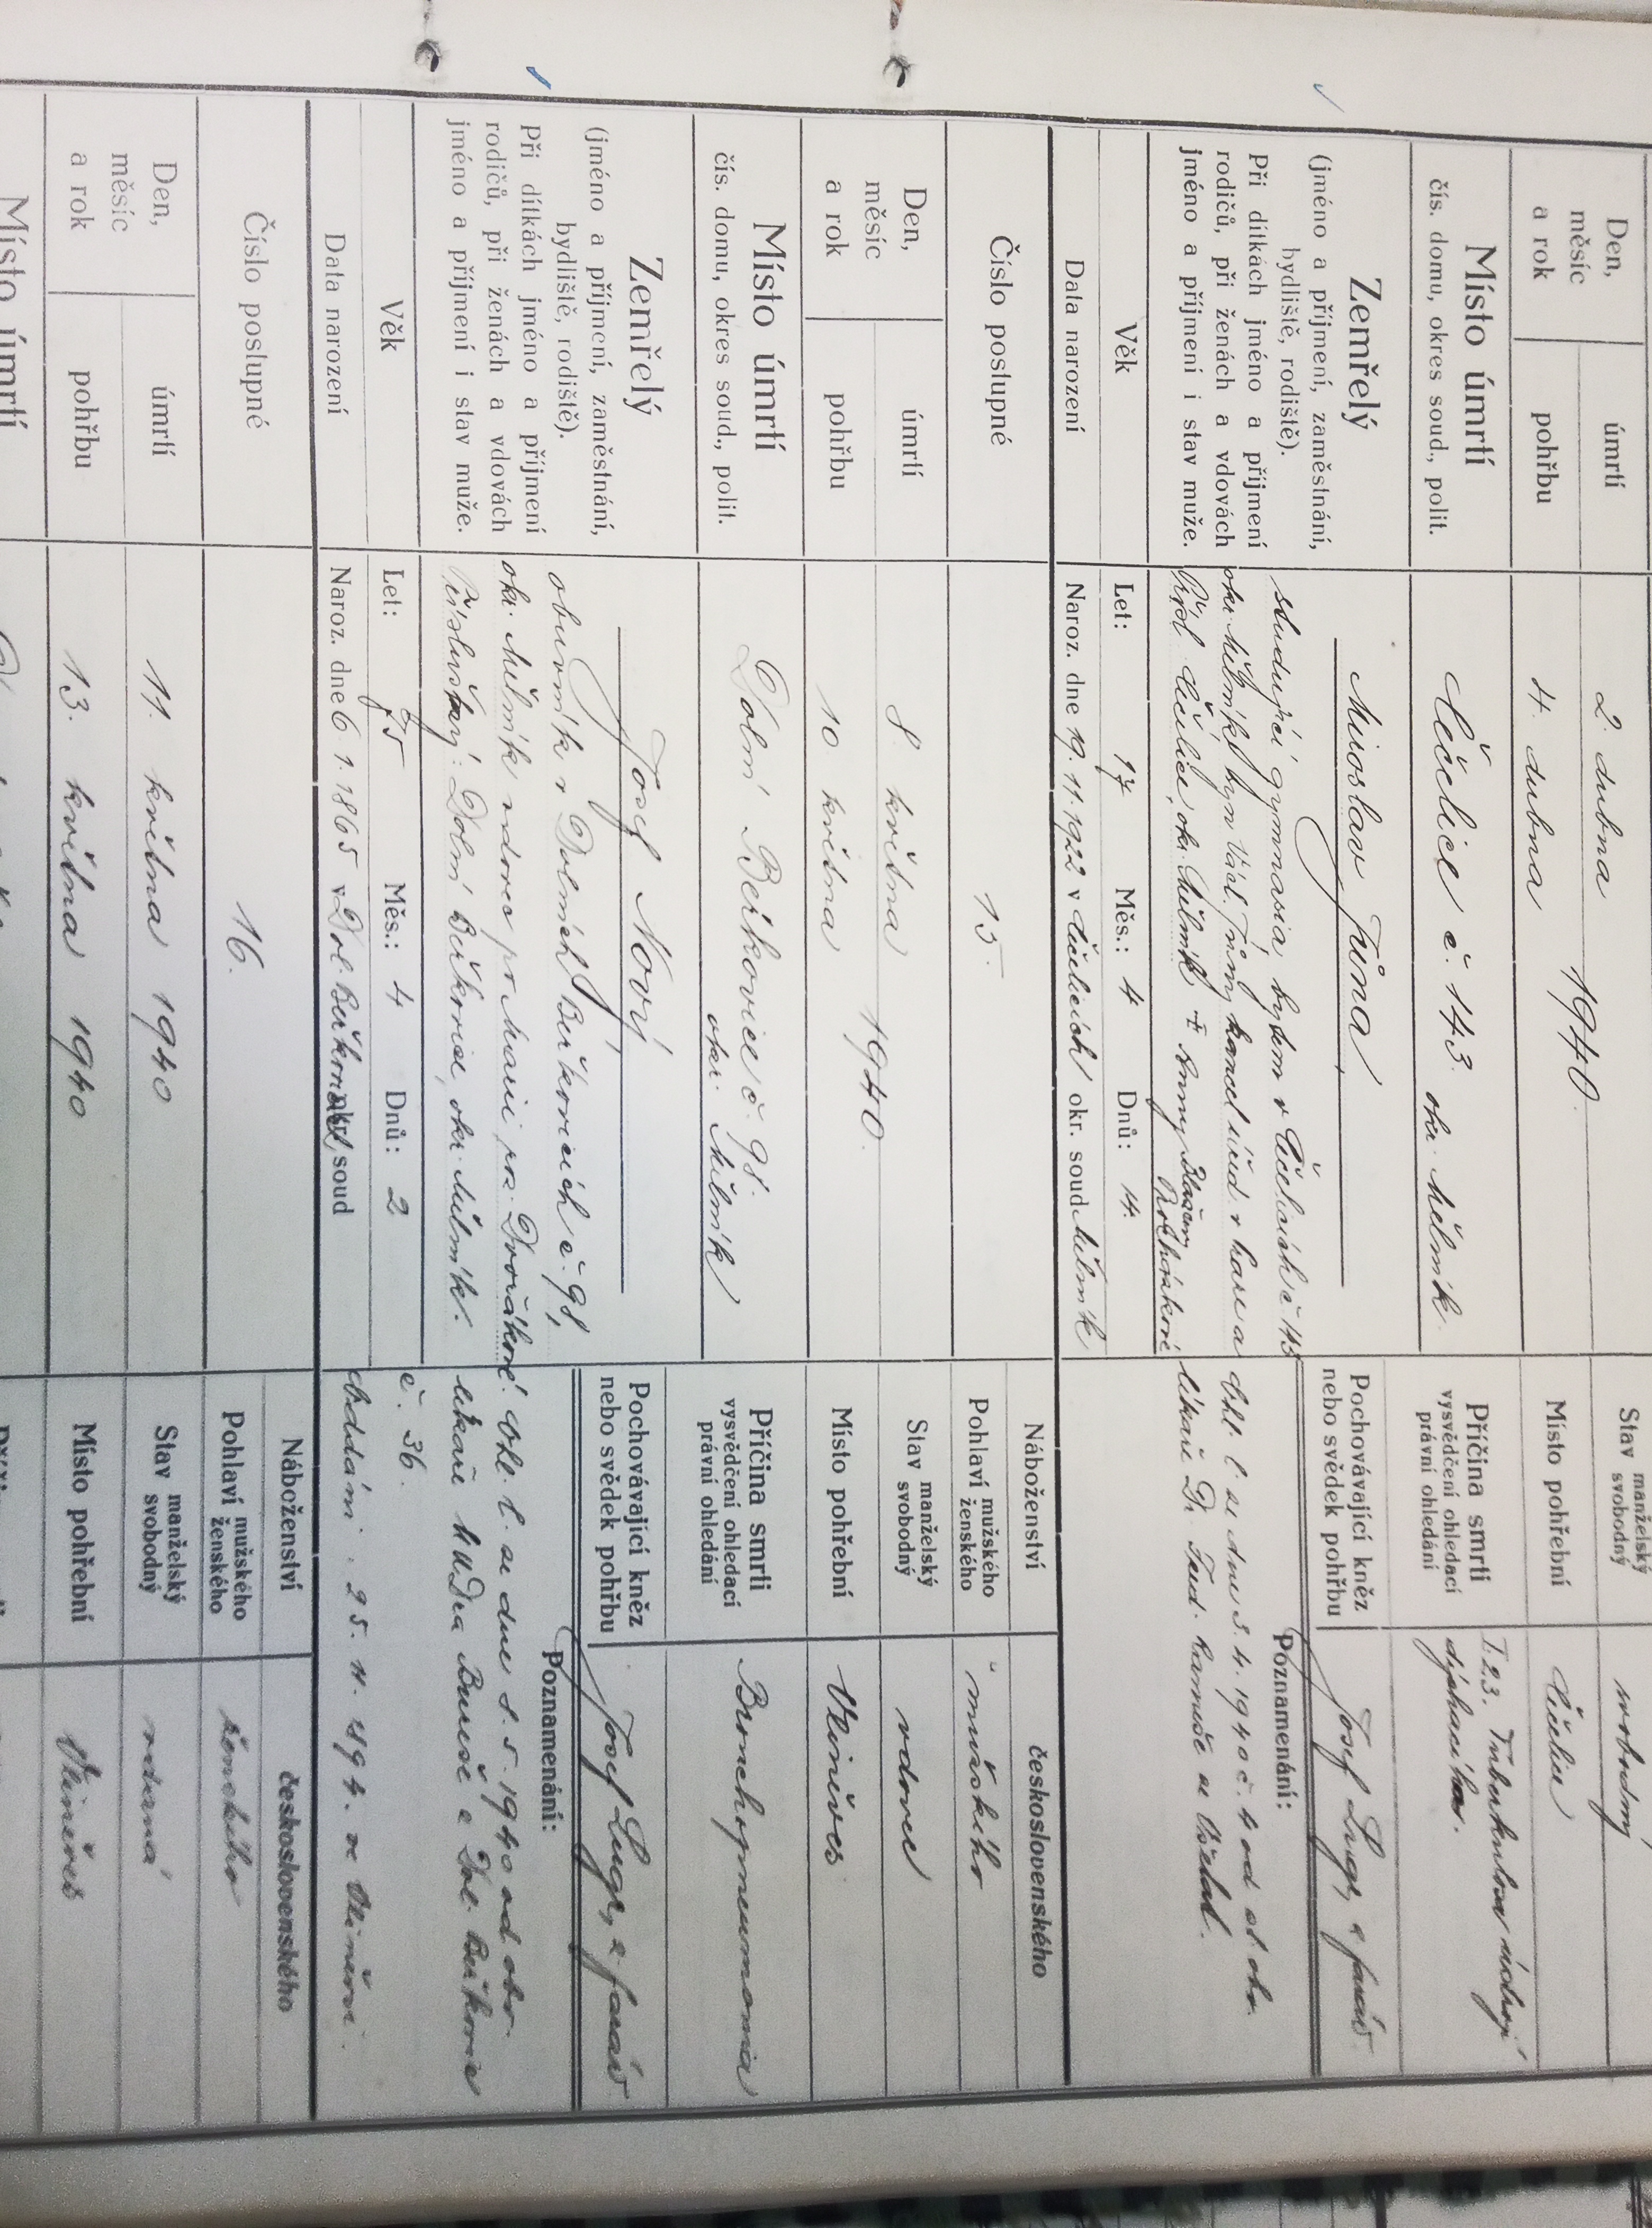 Den,
měsíc
a rok
úmrtí
2. dubna
1940.
pohřbu
4. dubna
Místo úmrtí
čís. domu, okres soud., polit.
Cčelice č. 143.
okr. Mělník
Zemřelý
(jméno a příjmení, zaměstnání,
bydliště, rodiště).
Při dítkách jméno a příjmení
rodičů, při ženách a vdovách
jméno a příjmení i stav muže.
Miroslav Tůma,
studující gymnasia, bytem v č. 143
okr. Mělník, syn Tůmy v a
okr. Mělník + Anny
Věk
Let: 17 Měs.: 4 Dnů: 14.
Data narození
Naroz. dne 19. 11. 1922 v okr. soud Mělník
Stav manželský
svobodný
svobodný
Místo pohřební
Příčina smrti
vysvědčení ohledací
právní ohledání
T. 23. Tuberkulosa ústrojí
dýchacího.
Pochovávající kněz
nebo svědek pohřbu
Josef farář
Poznamenání:
Ohl. l. ze dne 3. 4. 1940 č. 4 od ob. ob.
lékaře Dr. ze Všetat.
Číslo postupné
15.
Den,
měsíc
a rok
úmrtí
8. května
1940.
pohřbu
10 května
Místo úmrtí
čís. domu, okres soud., polit.
Dolní Beřkovice č. 98.
okr. Mělník
Zemřelý
(jméno a příjmení, zaměstnání,
bydliště, rodiště).
Při dítkách jméno a příjmení
rodičů, při ženách a vdovách
jméno a příjmení i stav muže.
Josef Nový,
obuvník v Dolních Beřkovicích č. 98,
okr. Mělník vdovec po Marii roz. Dvořákové.
Příslušný: Dolní Beřkovice, okr. Mělník.
Věk
Let: 75 Měs.: 4 Dnů: 2
Data narození
Naroz. dne 6. 1. 1865 v Dol. Beřkovicích, okr. soud
Náboženství
československého
Pohlaví mužského
ženského
mužského
Stav manželský
svobodný
vdovec
Místo pohřební
Vliněves
Příčina smrti
vysvědčení ohledací
právní ohledání
Bronchopneumonia
Pochovávající kněz
nebo svědek pohřbu
Josef farář
Poznamenání:
Ohl. l. ze dne 8. 5. 1940 od obv.
lékaře MUDra Bureše z Dol. Beřkovic
č. 36.
Oddáni: 25. 11. 1894. ve Vliněvsi.
Číslo postupné
16.
Den,
měsíc
a rok
úmrtí
11. května 1940
pohřbu
13. května 1940
Místo úmrtí
Náboženství
československého
Pohlaví mužského
ženského
ženského
Stav manželský
svobodný
vdaná
Místo pohřební
Vliněves